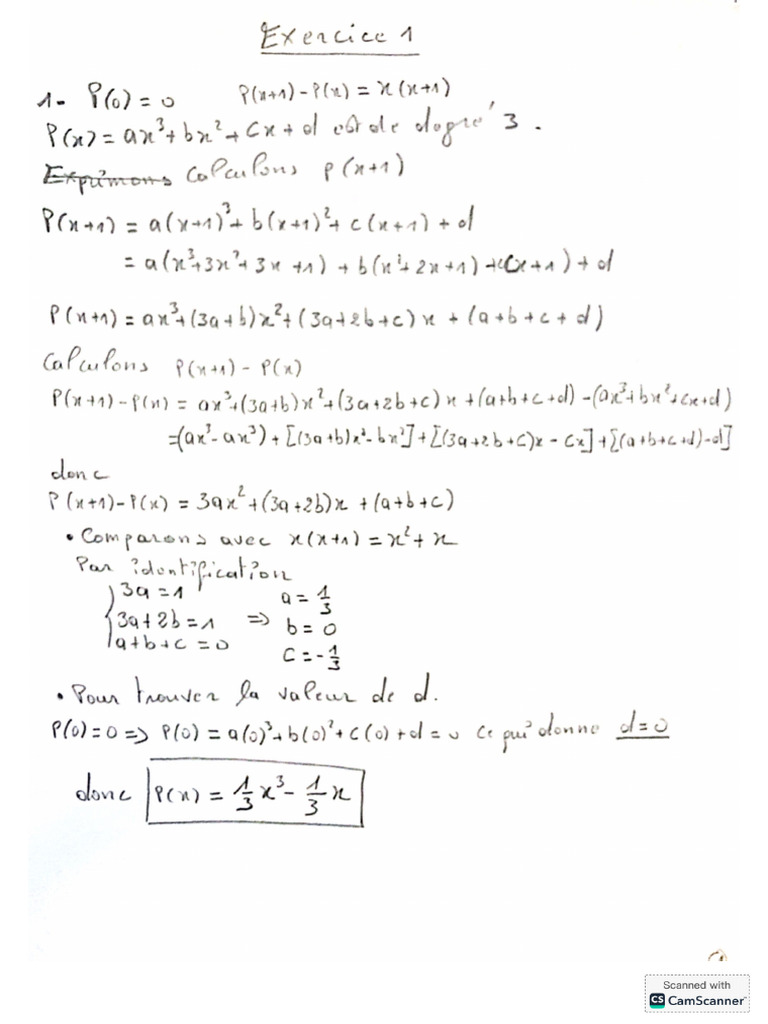 Exercice 1
1- P(0) = 0 P(x+1) - P(x) = x(x+1)
P(x) = ax³ + bx² + cx + d est de degré 3.
Exprimons Calculons P(x+1)
P(x+1) = a(x+1)³ + b(x+1)² + c(x+1) + d
= a(x³+3x²+3x+1) + b(x²+2x+1) + c(x+1) + d
P(x+1) = ax³+(3a+b)x²+(3a+2b+c)x + (a+b+c+d)
Calculons P(x+1) - P(x)
P(x+1) - P(x) = ax³+(3a+b)x²+(3a+2b+c)x+(a+b+c+d) - (ax³+bx²+cx+d)
=(ax³-ax³) + [(3a+b)x²-bx²]+[(3a+2b+c)x - cx]+[(a+b+c+d)-d]
donc
P(x+1)-P(x) = 3ax²+(3a+2b)x + (a+b+c)
• Comparons avec x(x+1) = x² + x
Par identification
{ 3a = 1 a = 1/3
3a+2b = 1 => b = 0
a+b+c = 0 c = -1/3
• Pour trouver la valeur de d.
P(0) = 0 => P(0) = a(0)³+b(0)²+c(0)+d = 0 ce qui donne d=0
donc P(x) = 1/3 x³ - 1/3 x
Scanned with
CS CamScanner